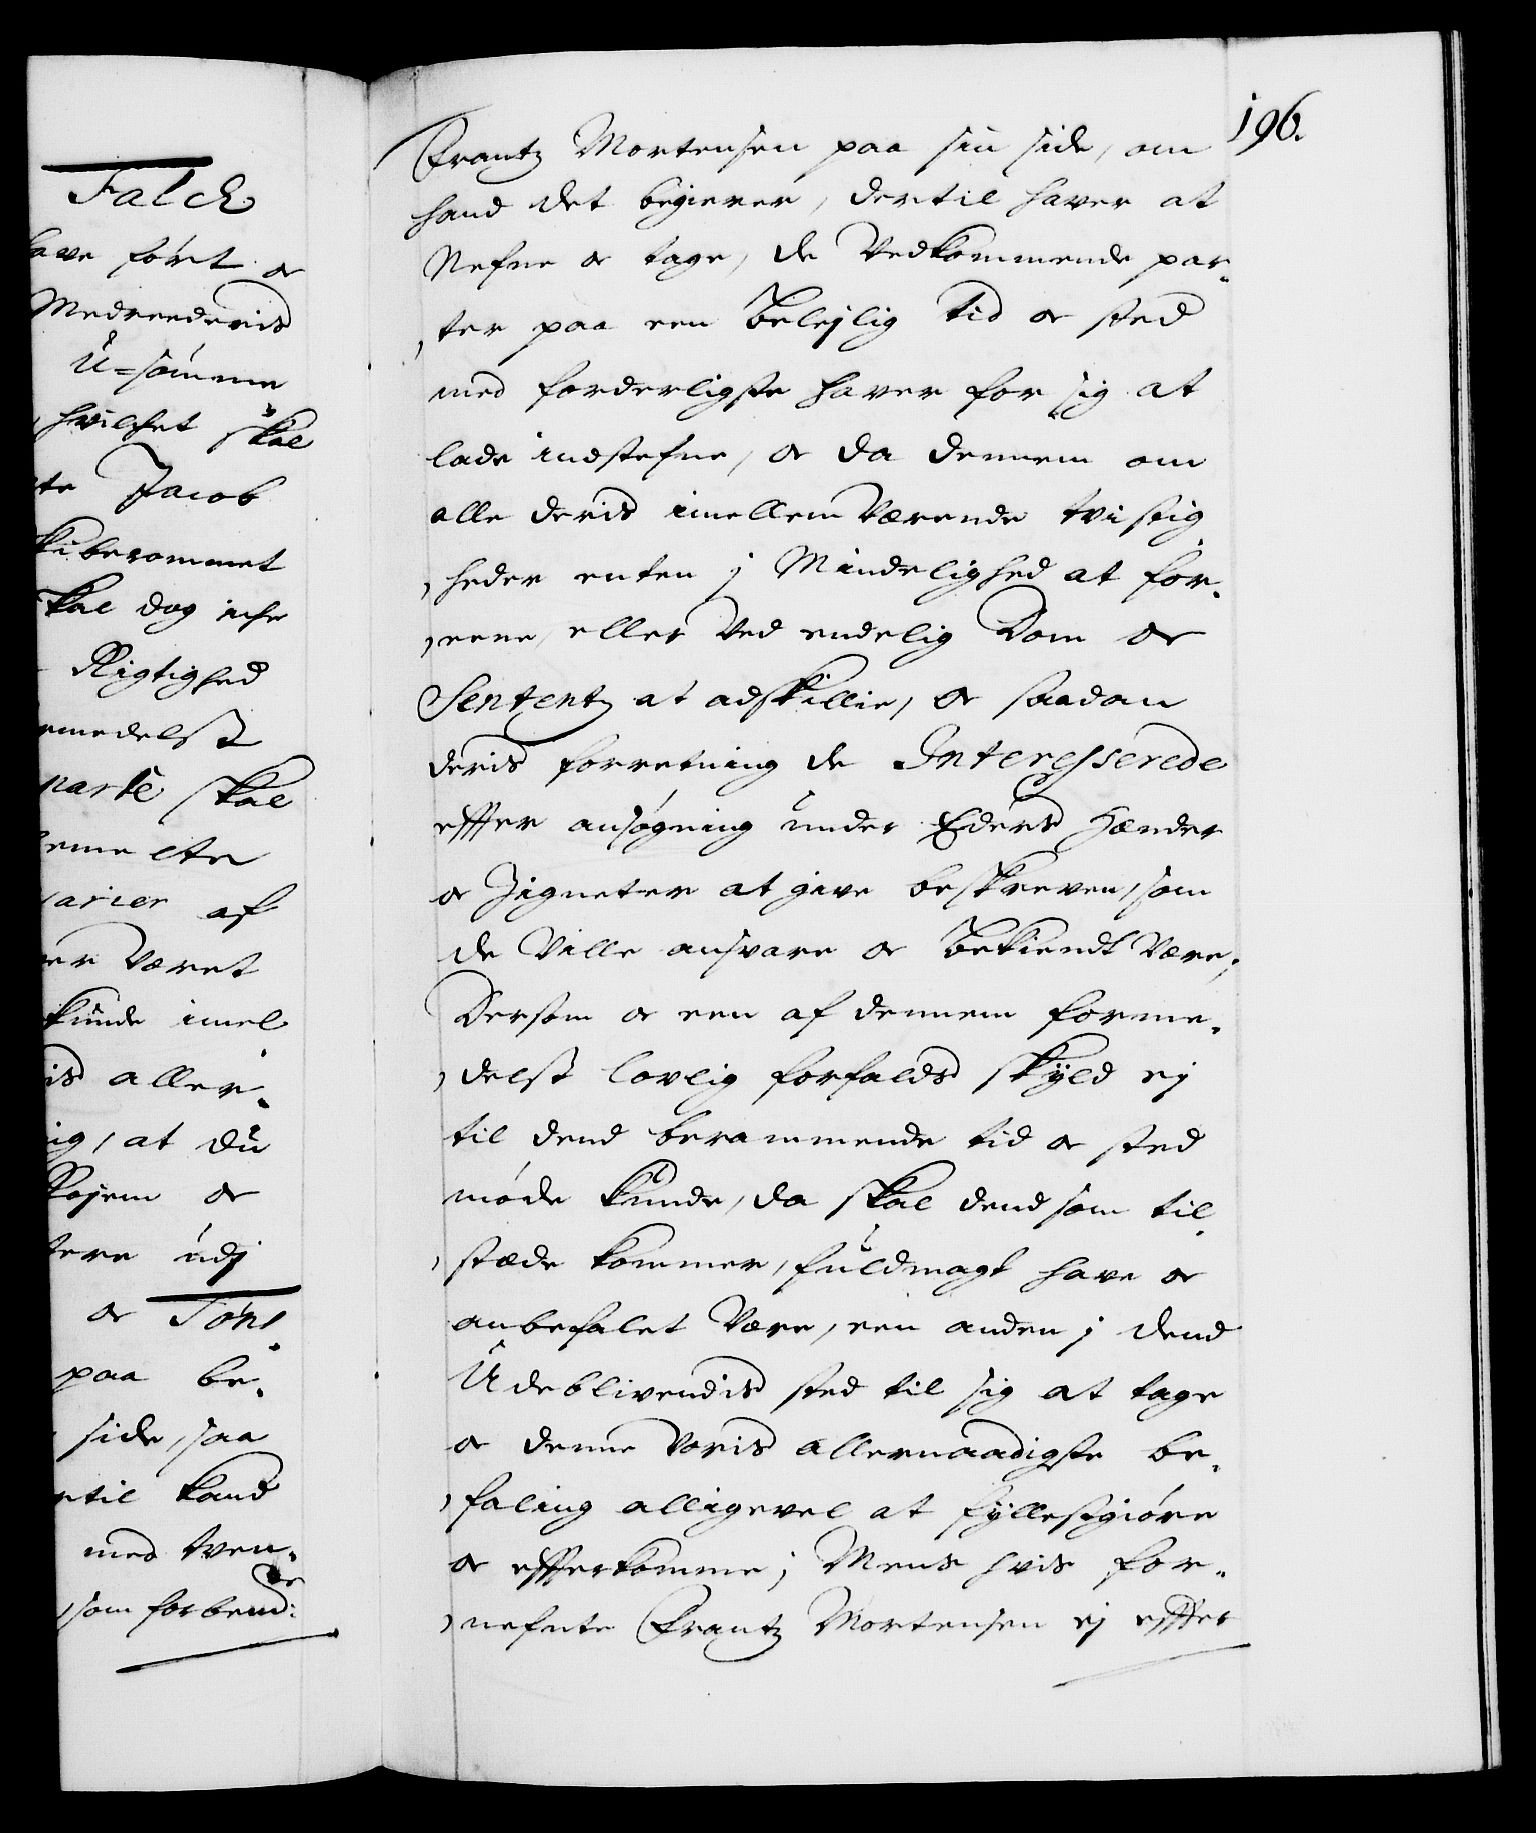 Falch
have ført og
Medreederis
U-sømme
hvilchet skal
Jacob
skiberommet
skal dog iche
Rigtighed
parte skal
af
været
kunde imel
is aller-
ig, at du
og
udj
og Tøns
paa be-
side, saa
til kand
med tven-
som forbemd:te
196.
Frantz Mortensen paa sin side, om
hand det begierer, dertil haver at
Nefne og tage, de Vedkommende par-
ter paa een Belejlig tid og sted
med forderligste haver for sig at
lade indstefne, og da dennem om
alle deris imellem Værende tvistig-
heder enten j Mindelighed at for-
eene, eller Ved endelig Dom og
Sententz at adskillie, og saadan
deris forretning de Interesserede
effter ansøgning under Eders Hænder
og Zigneter at give beskreven, som
de Ville ansvare og Bekiendt Være;
Dersom og een af dennem forme-
delst lovlig forfalds skyld ej
til dend berammende tid og sted
møde kunde, da skal dend som til
stæde kommer, fuldmagt have og
anbefalet Være, een anden j dend
Udeblivendis sted til sig at tage
og denne Voris allernaadigste be-
faling alligevel at fyllestgiøre
og effterkomme; Mens hvis for-
nefnte Frantz Mortensen ej effter